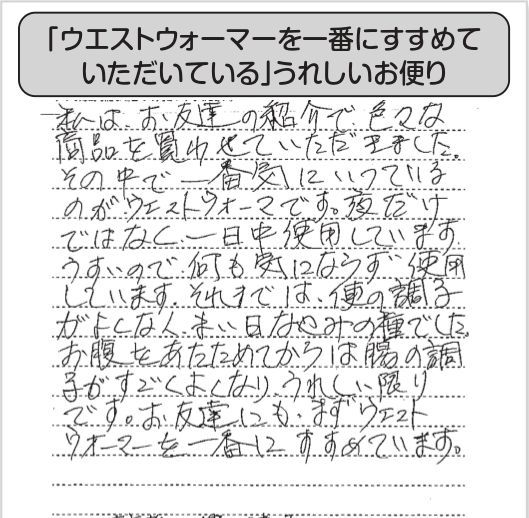 「ウエストウォーマーを一番にすすめて
いただいている」うれしいお便り
私は、お友達の紹介で、色々な
商品を買わせていただきました。
その中で一番気にいっている
のが、ウエストウォーマです。夜だけ
ではなく、一日中使用しています
うすいので、何も気にならず使用
しています。それまでは、便の調子
がよくなく、まい日なやみの種でした。
お腹をあたためてからは腸の調
子がすごくよくなり、うれしい限り
です。お友達にも、まずウエスト
ウォーマーを一番にすすめています。